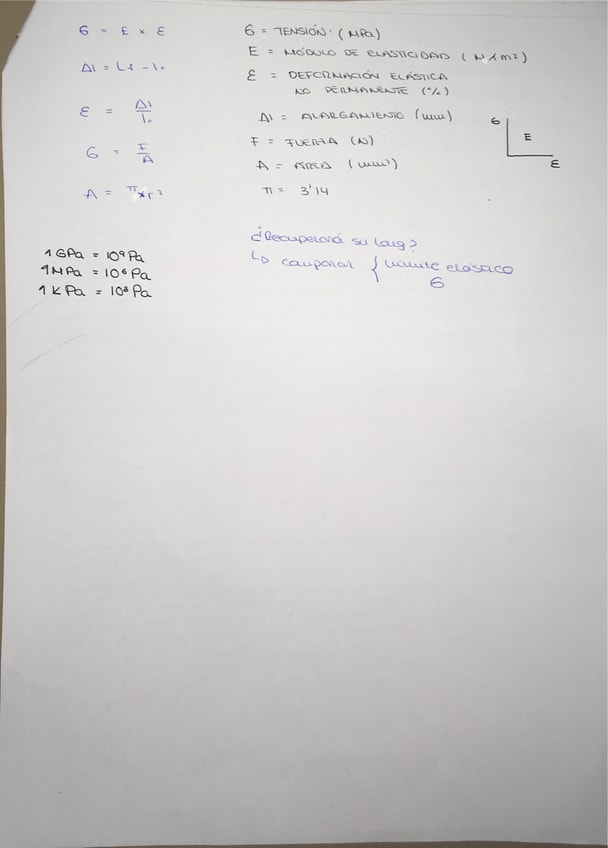 σ = E × ε
Δl = Lf - l₀
ε = Δl / l₀
σ = F / A
A = π × r²
σ = TENSIÓN: (MPa)
E = MÓDULO DE ELASTICIDAD (N/m²)
ε = DEFORMACIÓN ELÁSTICA
NO PERMANENTE (%)
Δl = ALARGAMIENTO (mm)
F = FUERZA (N)
A = ÁREA (mm²)
π = 3'14
σ
E
ε
¿Recuperará su long?
↳ comparar { límite elástico
σ
1 GPa = 10⁹ Pa
1 MPa = 10⁶ Pa
1 KPa = 10³ Pa